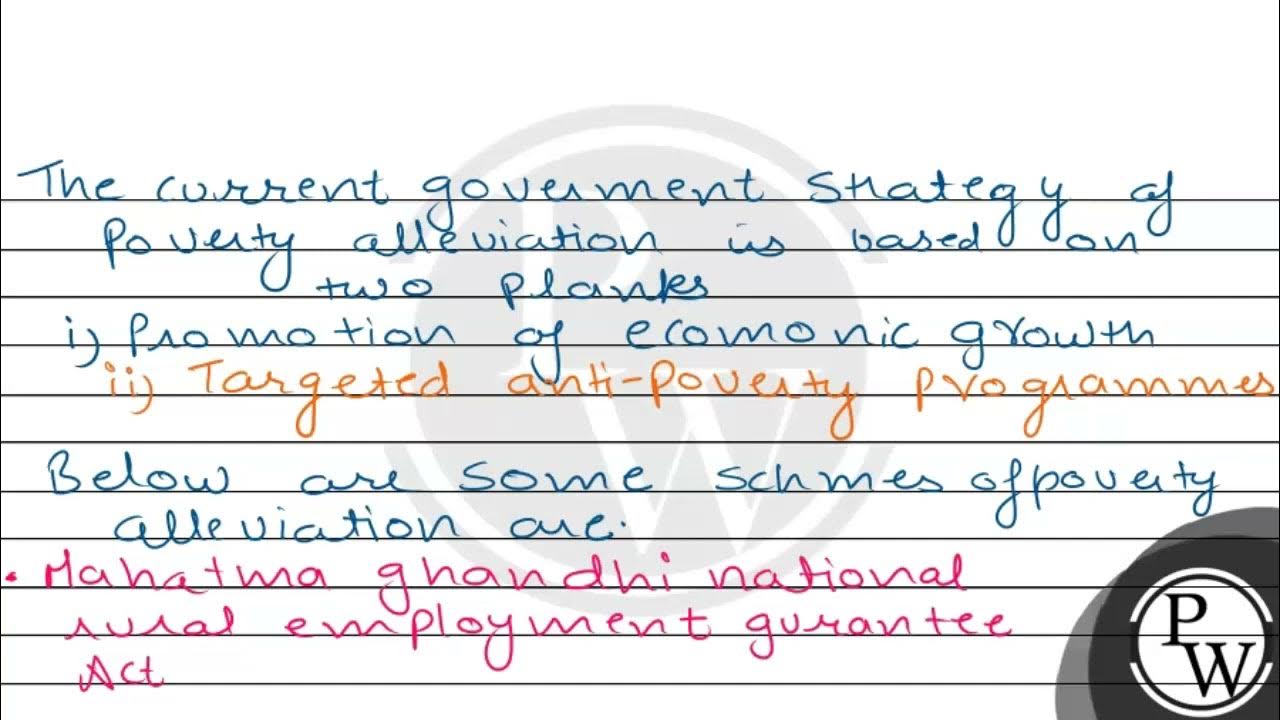 The current goverment strategy of
poverty alleviation is based on
two planks
i) Promotion of ecomonic growth
ii) Targeted anti-poverty programmes
Below are some schmes of poverty
alleviation are.
• Mahatma ghandhi national
rural employment gurantee
Act
P
W
P
W